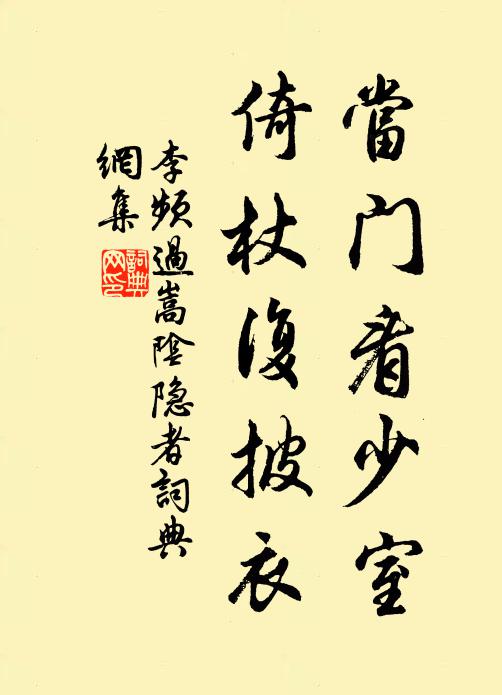 當門看少室
倚杖復披衣
李頻過嵩陰隐者詞典
網集
詞典
网印